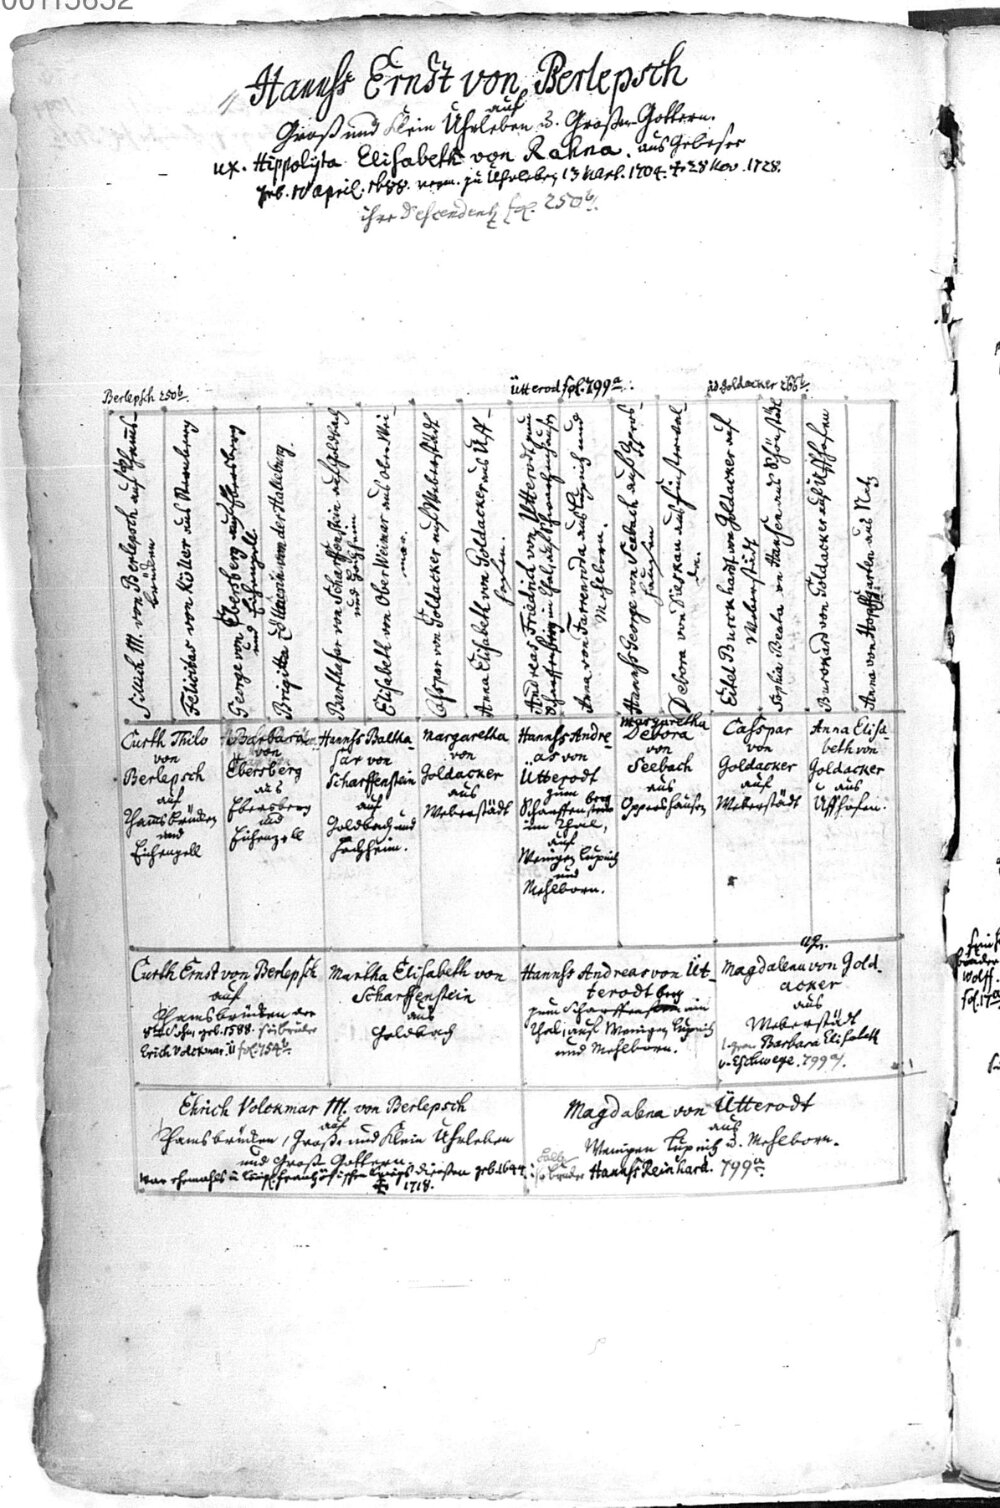 00113632
Hannß Ernst von Berlepsch
auf
Groß und Klein Uhrleben u. Großen Gottern.
ux. Hippolyta Elisabeth von Rahna. aus Gebesee
geb. 10 April. 1688. verm. zu Uhrleben 13 Mart. 1704. † 28 Nov. 1728.
ihre Descendentz fol. 250b.
Berlepsch 250b.
Ütterod fol. 799a.
Goldacker 266b.
Sittich M. von Berlepsch auf Thamsbrücken
Felicitas von Köller aus
George von Ebersberg auf Ebersberg und Eichenzell
Brigitta Maria von der Hakeburg
Barthasar von Scharffenstein auf Goldbach und Hochheim
Elisabeth von Ober Weimar aus Ober Weimar.
Caspar von Goldacker auf Weberstädt
Anna Elisabeth von Goldacker aus Uffhofen.
Andreas Friedrich von Ütterodt zum
Scharffenberg im Thal, auf
Anna von Farrenroda aus Lupnich und Mehlborn.
Hannß George von Seebach auf Oppershausen
Debora von Dieskau aus Finsterwalda.
Eitel Burckhardt von Goldacker auf Weberstädt
Sophia Beata von Hausen aus
Burckhard von Goldacker auf Uffhofen
Anna von Hopffgarten aus
Curth Thilo
von
Berlepsch
auf
Thamsbrücken
und
Eichenzell
Barbara
von
Ebersberg
aus
Ebersberg
und
Eichenzell
Hannß Baltha-
sar von
Scharffenstein
auf
Goldbach und
Hochheim.
Margaretha
von
Goldacker
aus
Weberstädt
Hannß Andre-
as von
Ütterodt
zum
Scharffenberg
im Thal,
auf
Wenigen Lupnich
und
Mehlborn.
Margaretha
Debora
von
Seebach
aus
Oppershausen
Casspar
von
Goldacker
auf
Weberstädt
Anna Elisa-
beth von
Goldacker
aus
Uffhofen.
Curth Ernst von Berlepsch
auf
Thamsbrücken der
geb. 1588. sein bruder
Erich Volckmar. fol. 754b.
Martha Elisabeth von
Scharffenstein
aus
Goldbach
Hannß Andreas von Üt-
terodt
zum Scharffenberg im
Thal, auf Wenigen Lupnich
und Mehlborn.
Magdalena von Gold-
acker
aus
Weberstädt
Barbara Elisabeth
v. Eschwege. 799a.
Ehrich Volckmar M. von Berlepsch
auf
Thamsbrücken, Groß- und Klein Uhrleben
und Großen Gottern.
war ehemahls in Königl. Frantzösischen Kriegs diensten geb. 1644.
† 1718.
Magdalena von Ütterodt
aus
Wenigen Lupnich u. Mehlborn.
bruder Hannß Reinhard. 799a.